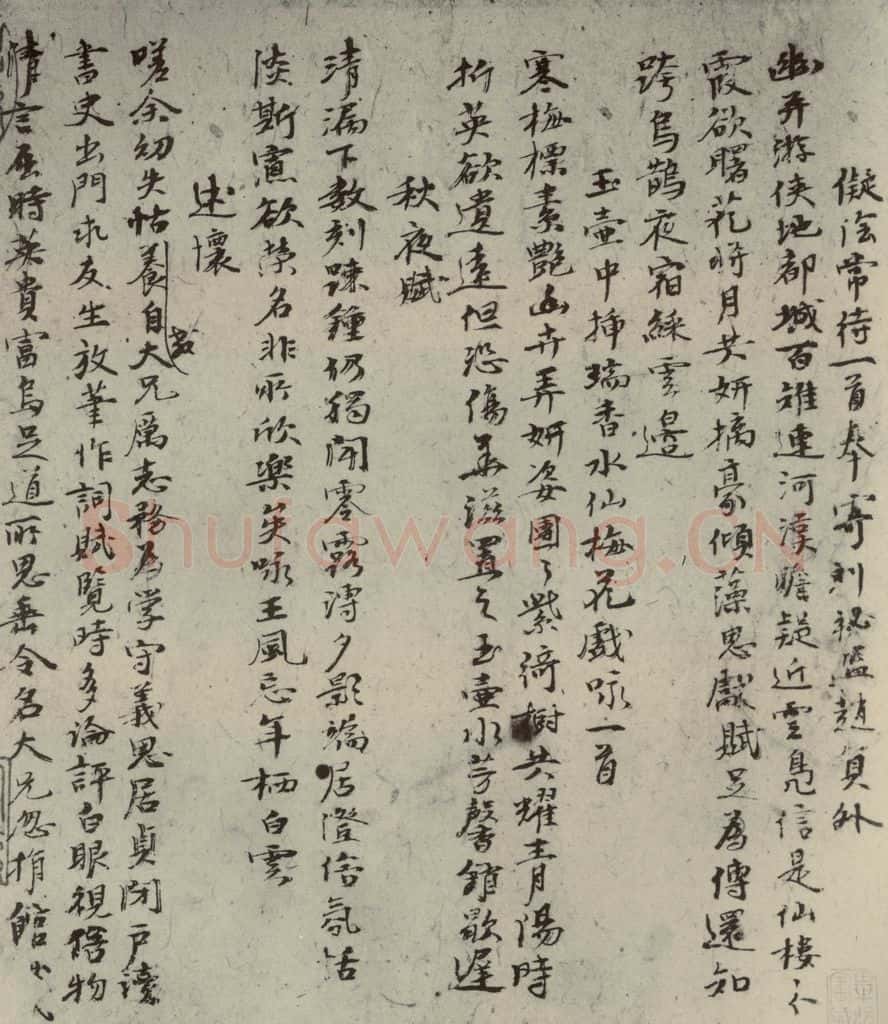 儗陰常待一首奉寄劉秘監趙員外
幽并游侠地都城百雉連河漢瞻疑近雲鳧信是仙樓
霞欲曙花將月共妍摛豪傾藻思獻賦足為傳還知
跨烏鵲夜宿綵雲邊
玉壺中插瑞香水仙梅花戲咏一首
寒梅標素艷幽卉弄妍姿團〻紫綺樹共耀青陽時
折英欲遺遠但恐傷華滋置之玉壺水芳馨銷歇遲
秋夜賦
清漏下數刻踈鐘仍獨聞零露漙夕影端居澄俗氛恬
淡斯寘欲榮名非所欣樂矣咏王風忘年栖白雲
述懷
嗟余幼失怙養自大兄厲志務為學守義思居貞閉戶讀
教
書史出門求友生放筆作詞賦覽時多論評白眼視俗物
清言屈時英貴富烏足道所思垂令名大兄忽捐館
Shufawang.CN